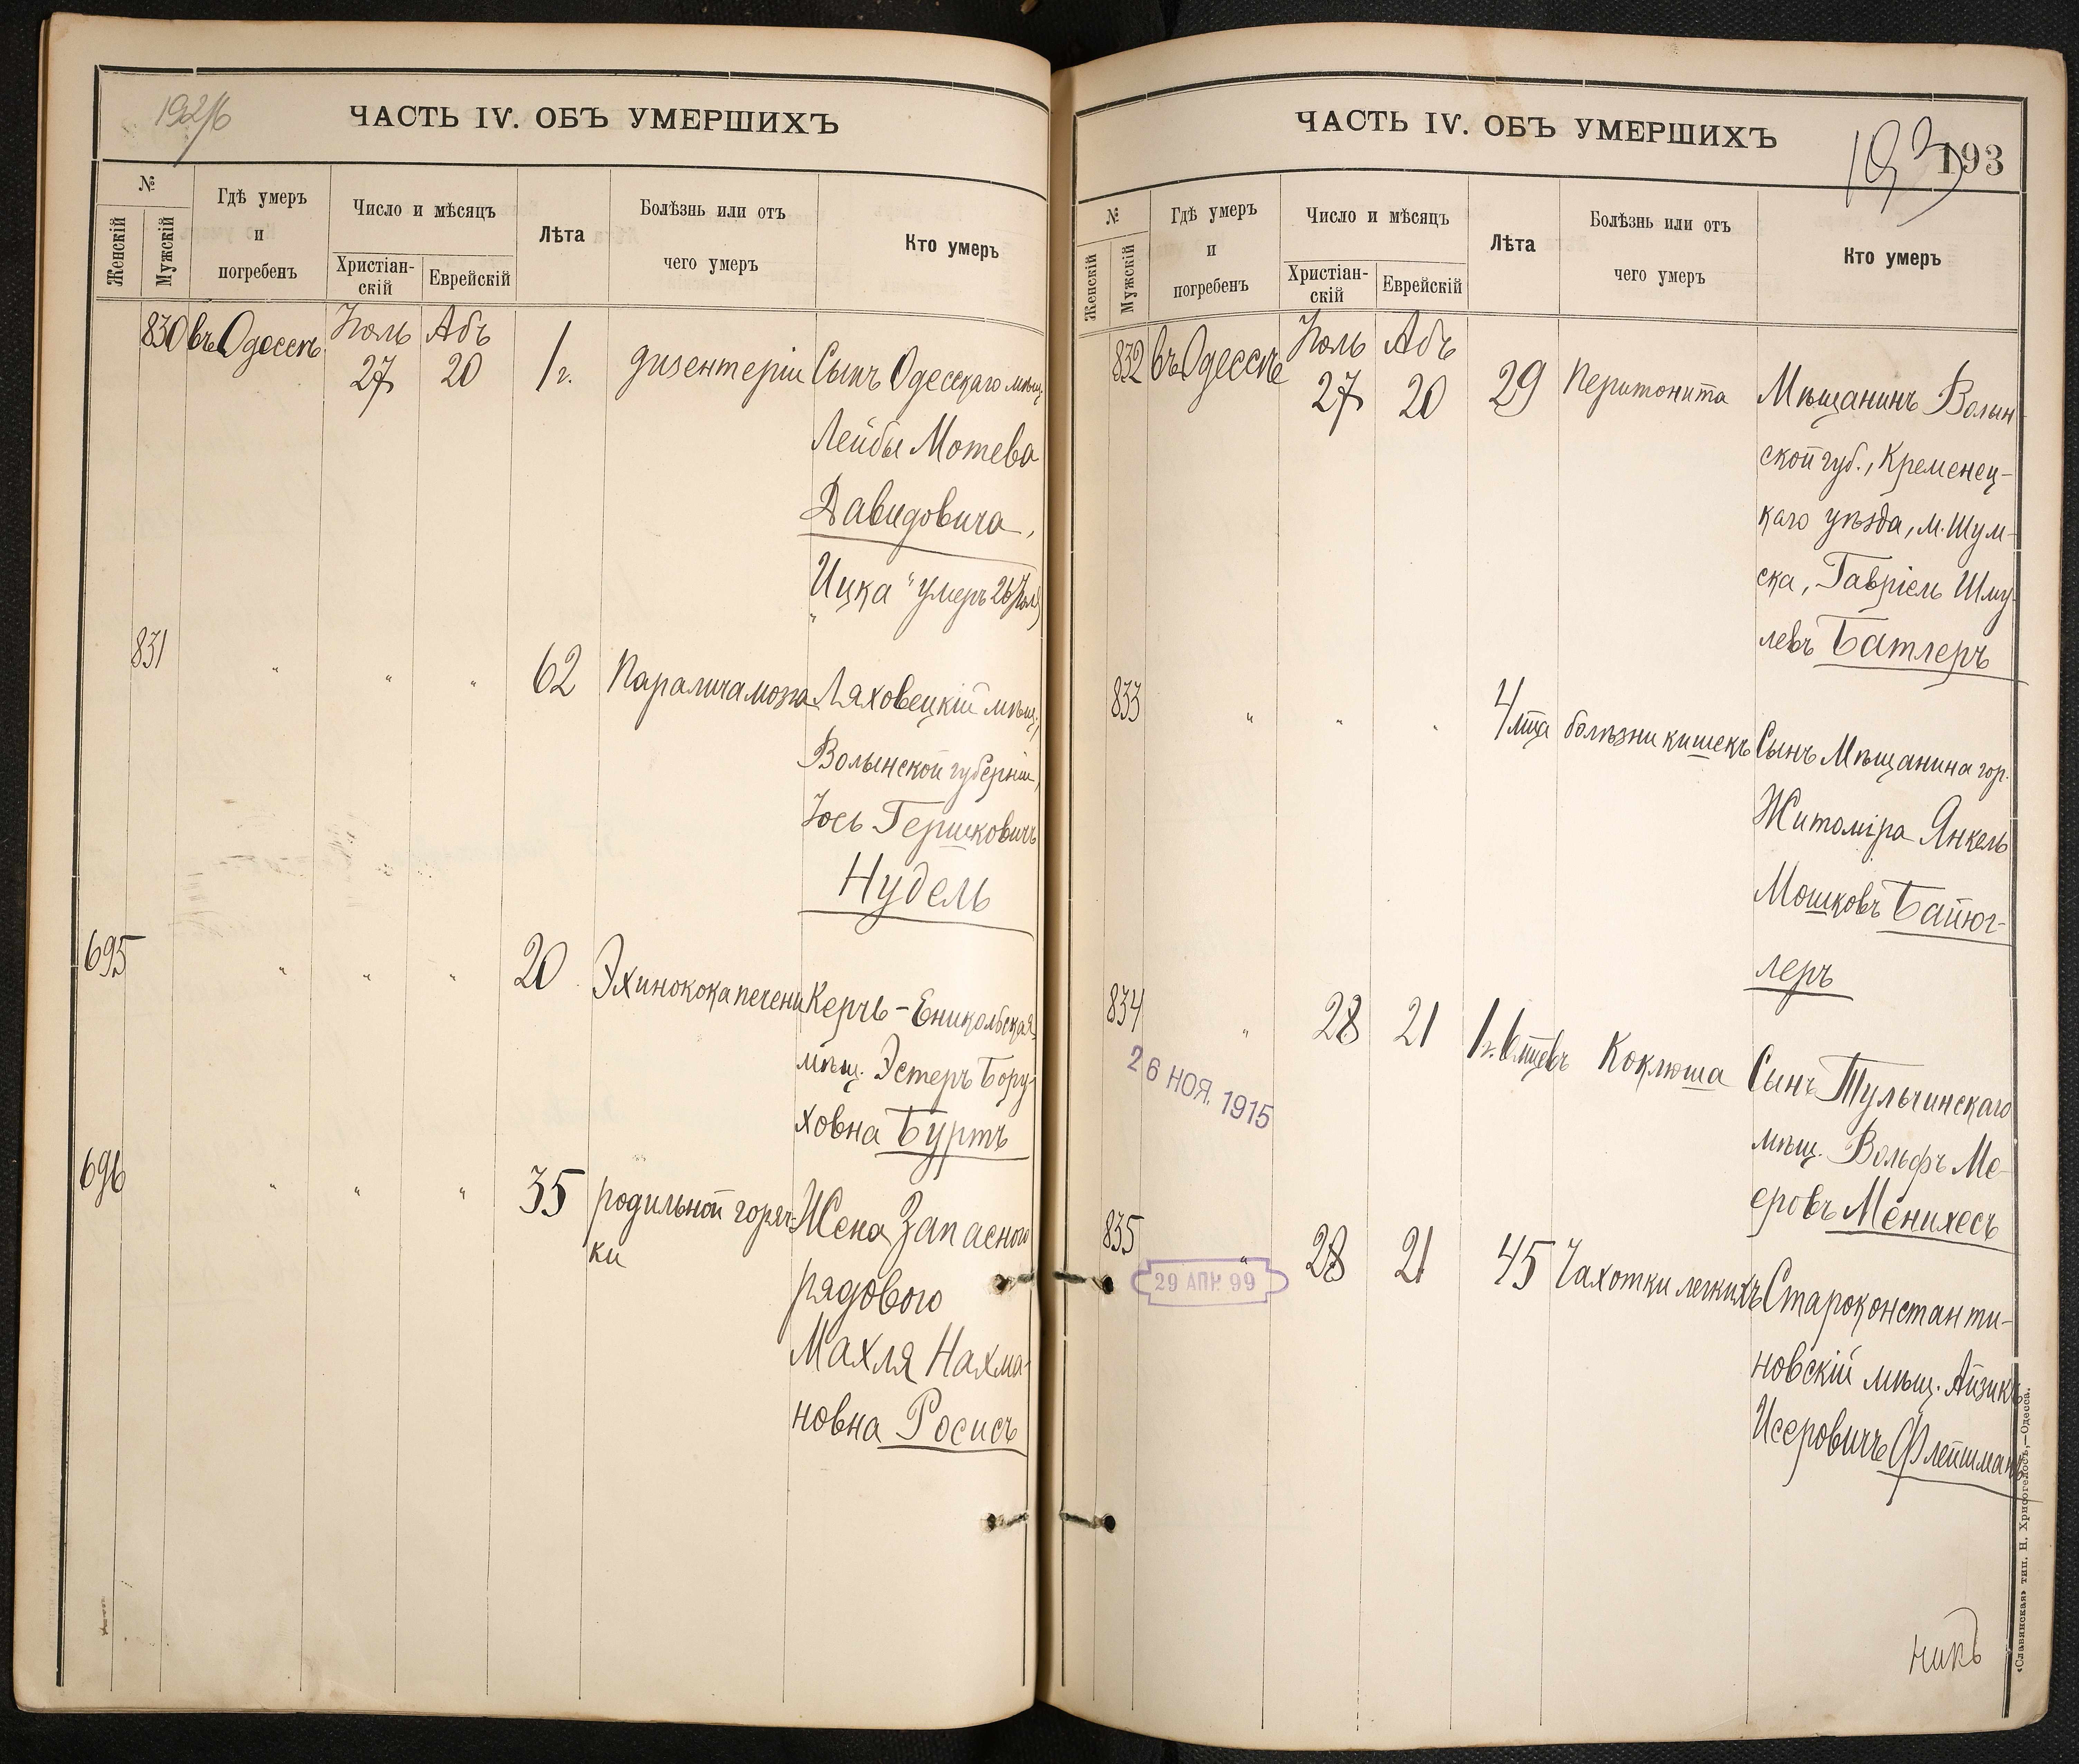 192/б
ЧАСТЬ IV. ОБЪ УМЕРШИХЪ
№
Женскій
Мужскій
Гдѣ умеръ
и
погребенъ
Число и мѣсяцъ
Христіан-
скій
Еврейскій
Лѣта
Болѣзнь или отъ
чего умеръ
Кто умеръ
830 въ Одессѣ Іюль 27 Абъ 20 1 г. дизентеріи Сынъ Одесскаго мѣщ.
Лейбы Мотева
Давидовича,
"Ицка" умеръ 26 Іюля)
831 " " " 62 Паралича мозга Ляховецкій мѣщ.,
Волынской губерніи,
Іось Гершковичъ
Нудель
695 " " " 20 Эхинокока печени Керчь-Ениколбская
мѣщ. Эстеръ Бору-
ховна Буртъ
696 " " " 35 родильной горяч- Жена Запасного
ки
рядового
Махля Нахма-
новна Росисъ
ЧАСТЬ IV. ОБЪ УМЕРШИХЪ
193
193
№
Женскій
Мужскій
Гдѣ умеръ
и
погребенъ
Число и мѣсяцъ
Христіан-
скій
Еврейскій
Лѣта
Болѣзнь или отъ
чего умеръ
Кто умеръ
832 въ Одессѣ Іюль 27 Абъ 20 29 Перитонита Мѣщанинъ Волын-
ской губ., Кременец-
каго уѣзда, м. Шум-
ска, Гавріель Шму-
левъ Батлеръ
833 " " " 4 мѣца болѣзни кишекъ Сынъ Мѣщанина гор.
Житоміра Янкель
Мошковъ Байюг-
леръ
834 " 28 21 1 г. 6 мцевъ Коклюша Сынъ Тульчинскаго
26 НОЯ. 1915
мѣщ. Вольфъ Ме-
еровъ Менихесъ
835 " 28 21 45 Чахотки легкихъ Староконстанти-
29 АПР. 99
новскій мѣщ. Айзикъ
Исеровичъ Флейшманъ
«Славянская» тип. Н. Хрисогелосъ,—Одесса.